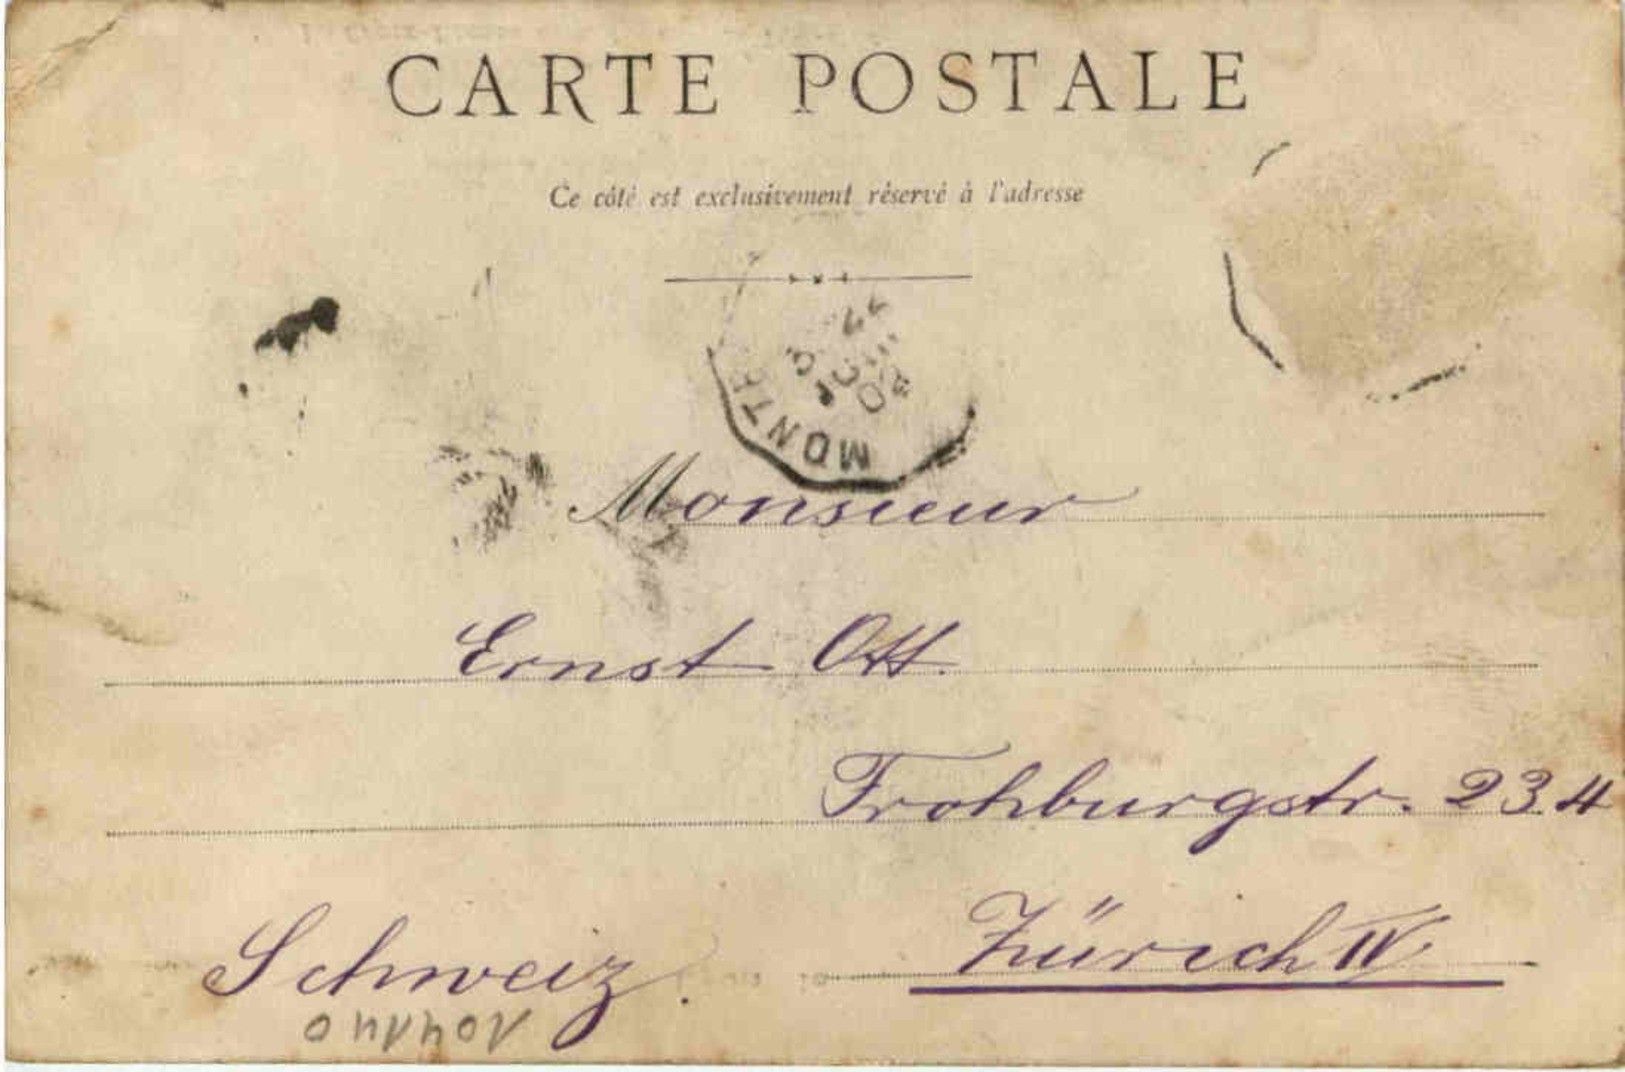 CARTE POSTALE
Ce côté est exclusivement réservé à l'adresse
MONT
Monsieur
Ernst Ott.
Frohburgstr. 234
Zürich IV
Schweiz.